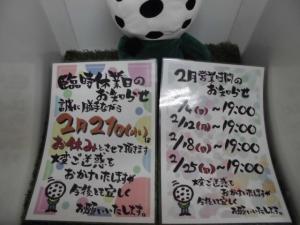 臨時休業日の
お知らせ
誠に勝手ながら
2月21日(水)は
お休みとさせて頂きます
大変ご迷惑を
おかけいたしますが
今後とも宜しく
お願いいたします。
2月営業時間の
お知らせ
~19:00
2/12(月)~19:00
2/18(日)~19:00
2/25(日)~19:00
大変ご迷惑を
おかけいたしますが
今後とも宜しく
お願いいたします。